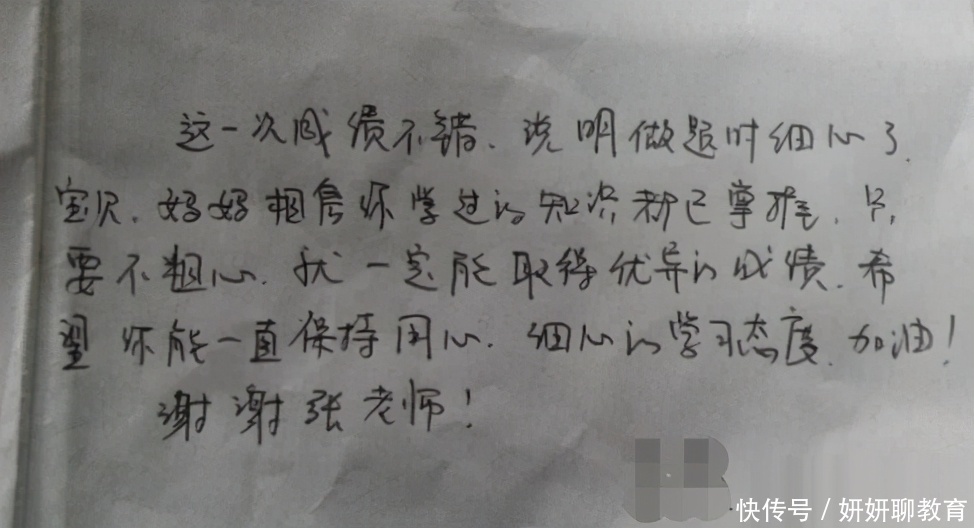 这一次成绩不错、说明做题时细心了.
宝贝、妈妈相信你学过的知识都已掌握、只
要不粗心、就一定能取得优异的成绩、希
望你能一直保持用心、细心的学习态度、加油！
谢谢张老师！
快传号 / 妍妍聊教育